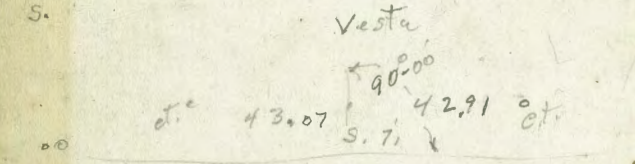 S.
Vesta
90°-00
et.c 43.07 42.91 et.
S. 7.
00